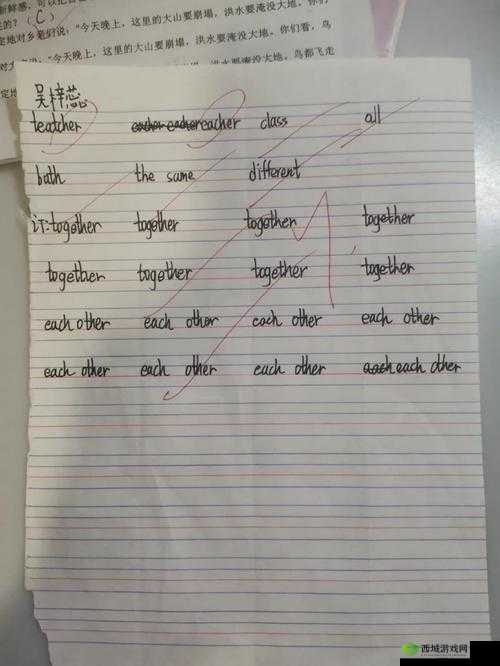 新鲜感，可以把
的？（C）
定地对乡亲们说：“今天晚上，这里的大山要崩塌，洪水要淹没大地。你们
对大家说：“今天晚上，这里的大山要崩塌，洪水要淹没大地。你们看，鸟
洪水要淹没大地，鸟都飞走
吴梓蕊
teadcher eacher eacher eacher class all
bath the same different
订:together together together together
together together together together
each other each other each other each other
each other each other each other each each other
西城游戏网